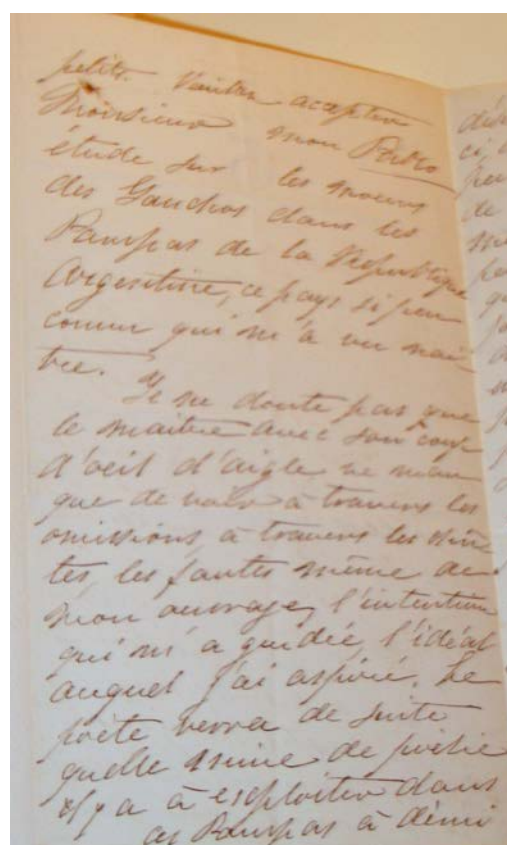 petits. Veuillez accepter
Monsieur mon Pablo
étude sur les moeurs
des Gauchos dans les
Pampas de la République
Argentine, ce pays si peu
connu qui m'a vu naî-
tre.
Je ne doute pas que
le maître avec son coup
d'oeil d'aigle ne man
que de voir à travers les
omissions à travers les
tes, les fautes même de
mon ouvrage, l'intention
qui m'a guidée, l'idéal
auquel j'ai aspiré. Le
poète verra de suite
quelle mine de poésie
il y a à exploiter dans
ces Pampas à demi